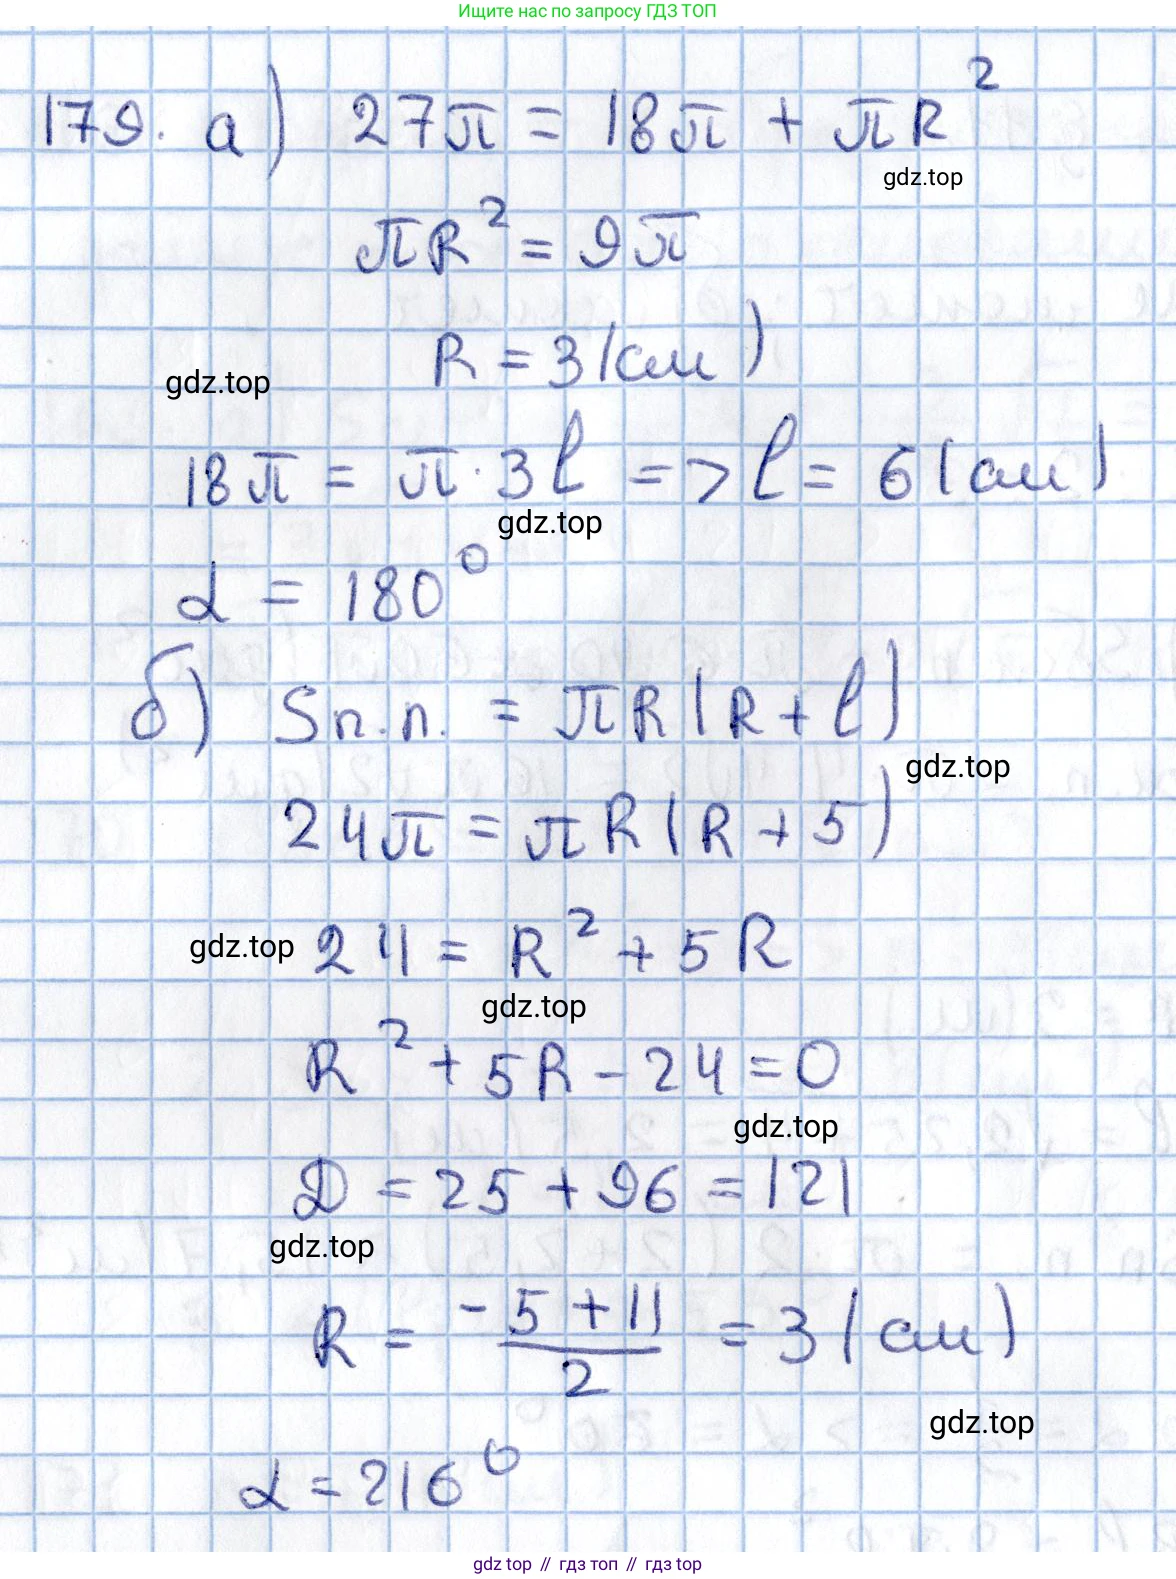 Ищите нас по запросу ГДЗ ТОП
179. а) 27π = 18π + πR²
gdz.top
πR² = 9π
R = 3 (см)
gdz.top
18π = π · 3l => l = 6 (см)
gdz.top
α = 180°
б) Sп.п. = πR(R + l)
gdz.top
24π = πR(R + 5)
gdz.top
24 = R² + 5R
gdz.top
R² + 5R - 24 = 0
gdz.top
D = 25 + 96 = 121
gdz.top
R = (-5 + 11)/2 = 3 (см)
gdz.top
α = 216°
gdz top // гдз топ // гдз top